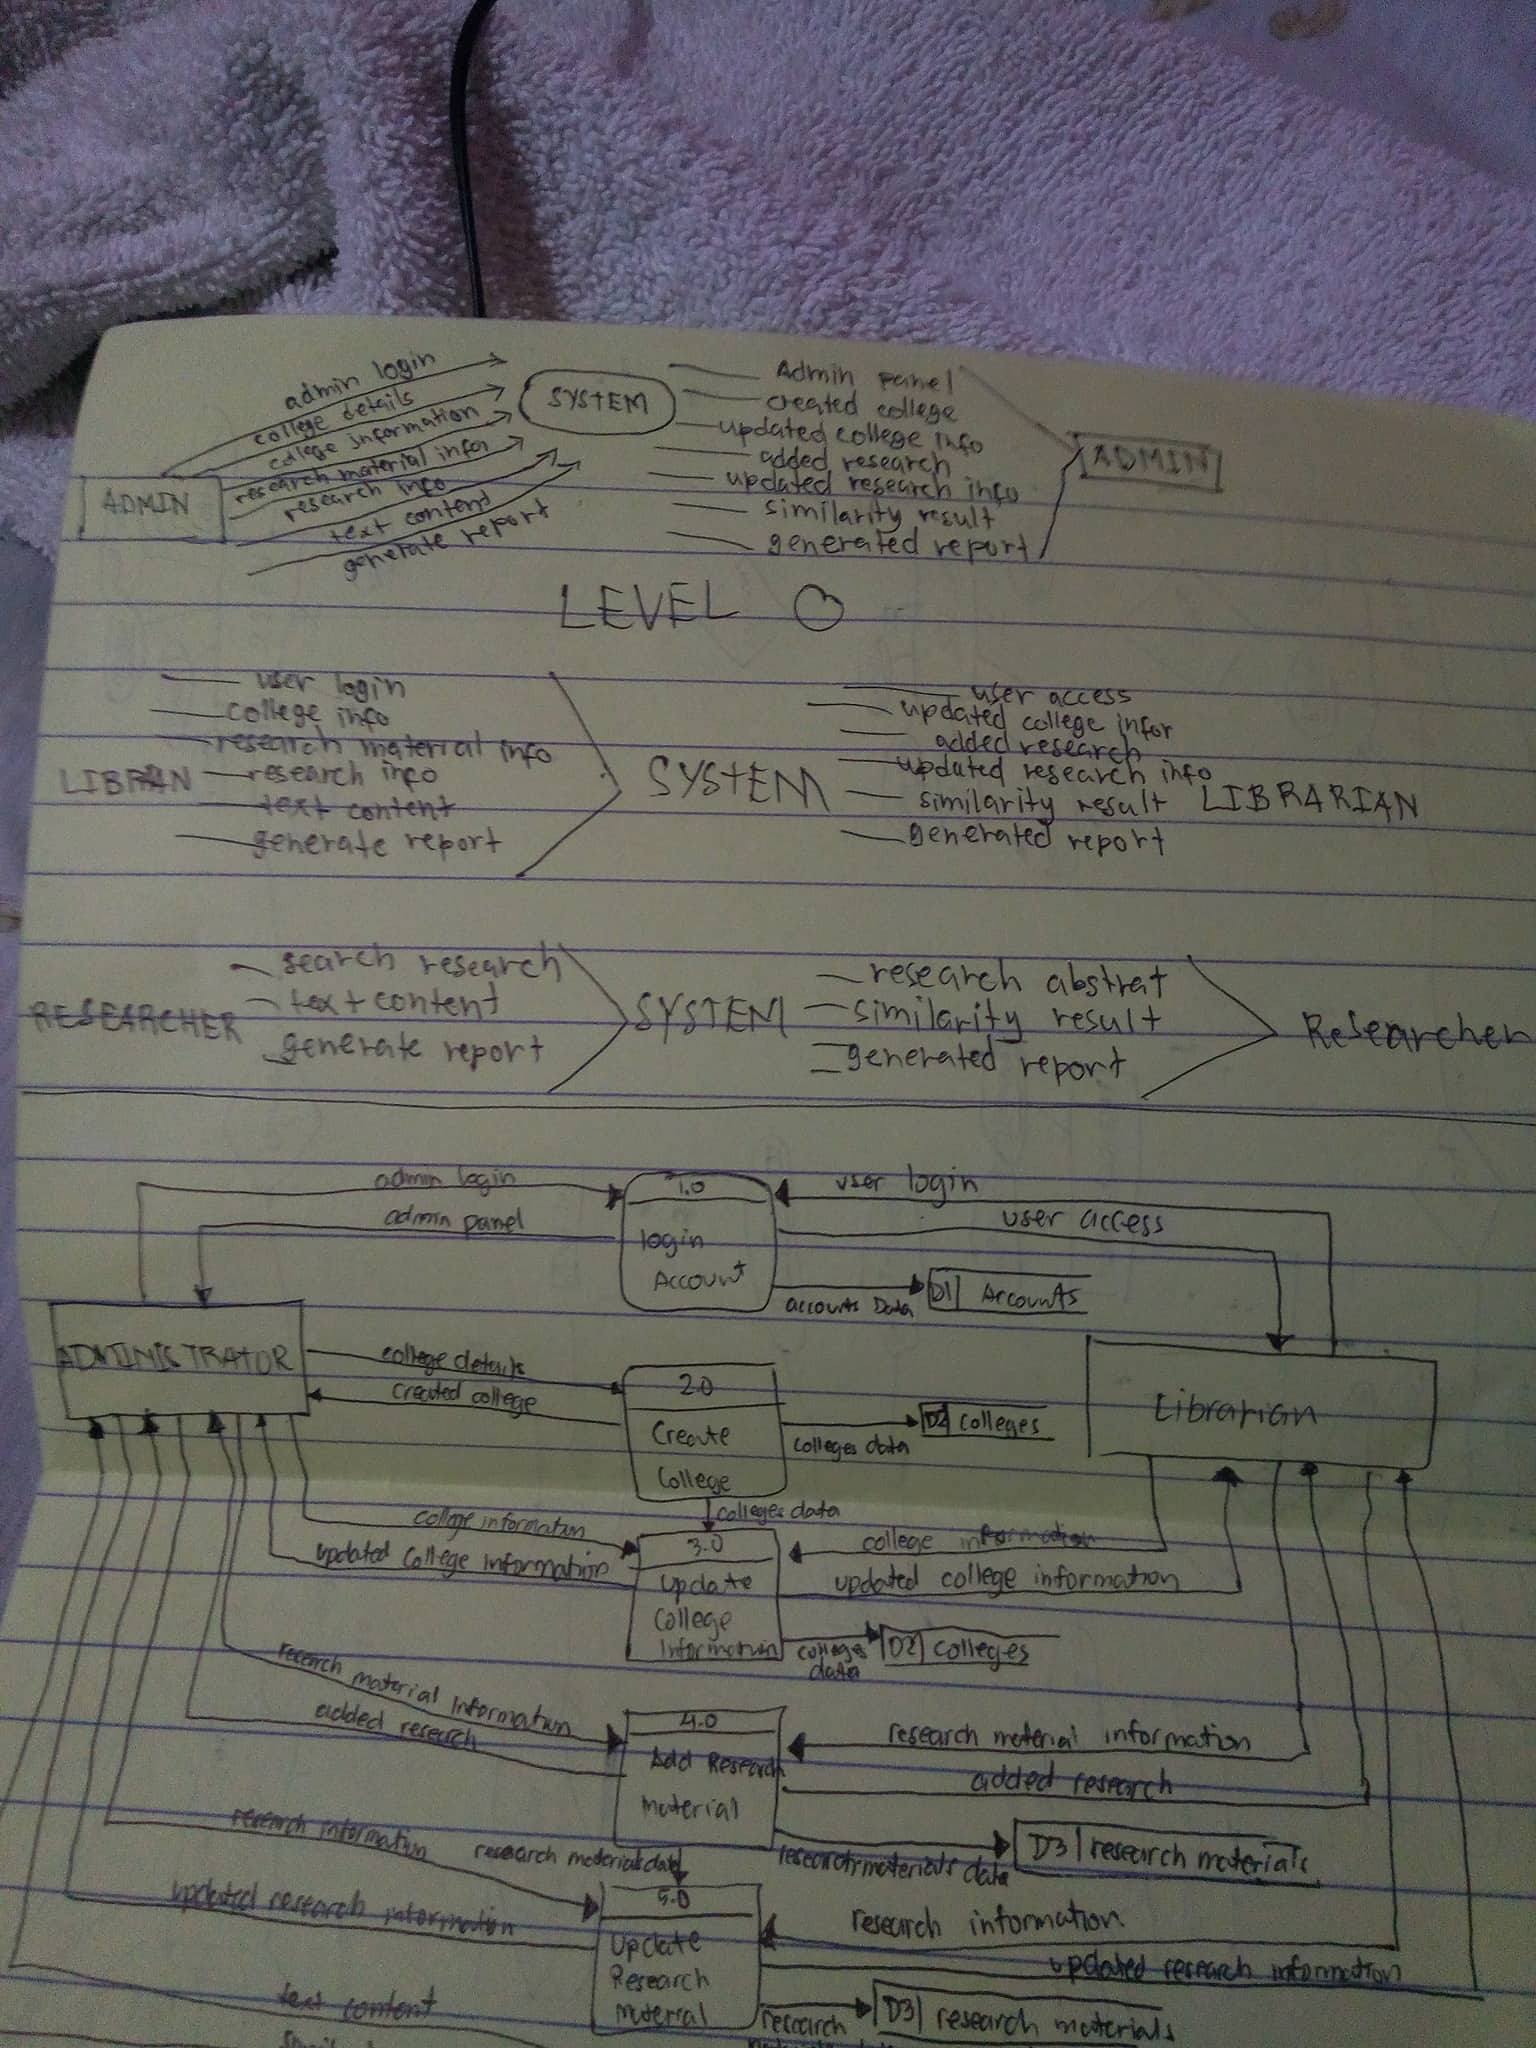 admin login
college details
college information
research material infor
research info
text contend
generate report
ADMIN
SYSTEM
Admin panel
created college
updated college info
added research
updated research info
similarity result
generated report
ADMIN
LEVEL 0
user login
college info
research material info
research info
text content
generate report
LIBRAN
SYSTEM
user access
updated college infor
added research
updated research info
similarity result
generated report
LIBRARIAN
search research
text content
generate report
RESEARCHER
SYSTEM
research abstrat
similarity result
generated report
Researcher
admin login
admin panel
1.0
login
Account
user login
user access
accounts Data
D1 Accounts
ADMINISTRATOR
college details
created college
2.0
Create
College
colleges data
D2 colleges
Librarian
colleges data
college information
updated College Information
3.0
update
College
Information
college information
updated college information
colleges
data
D2 colleges
research material information
added research
4.0
Add Research
Material
research material information
added research
research materials data
D3 research materials
research information
research materials data
updated research information
5.0
update
Research
material
research information
updated research information
research
D3 research materials
text content